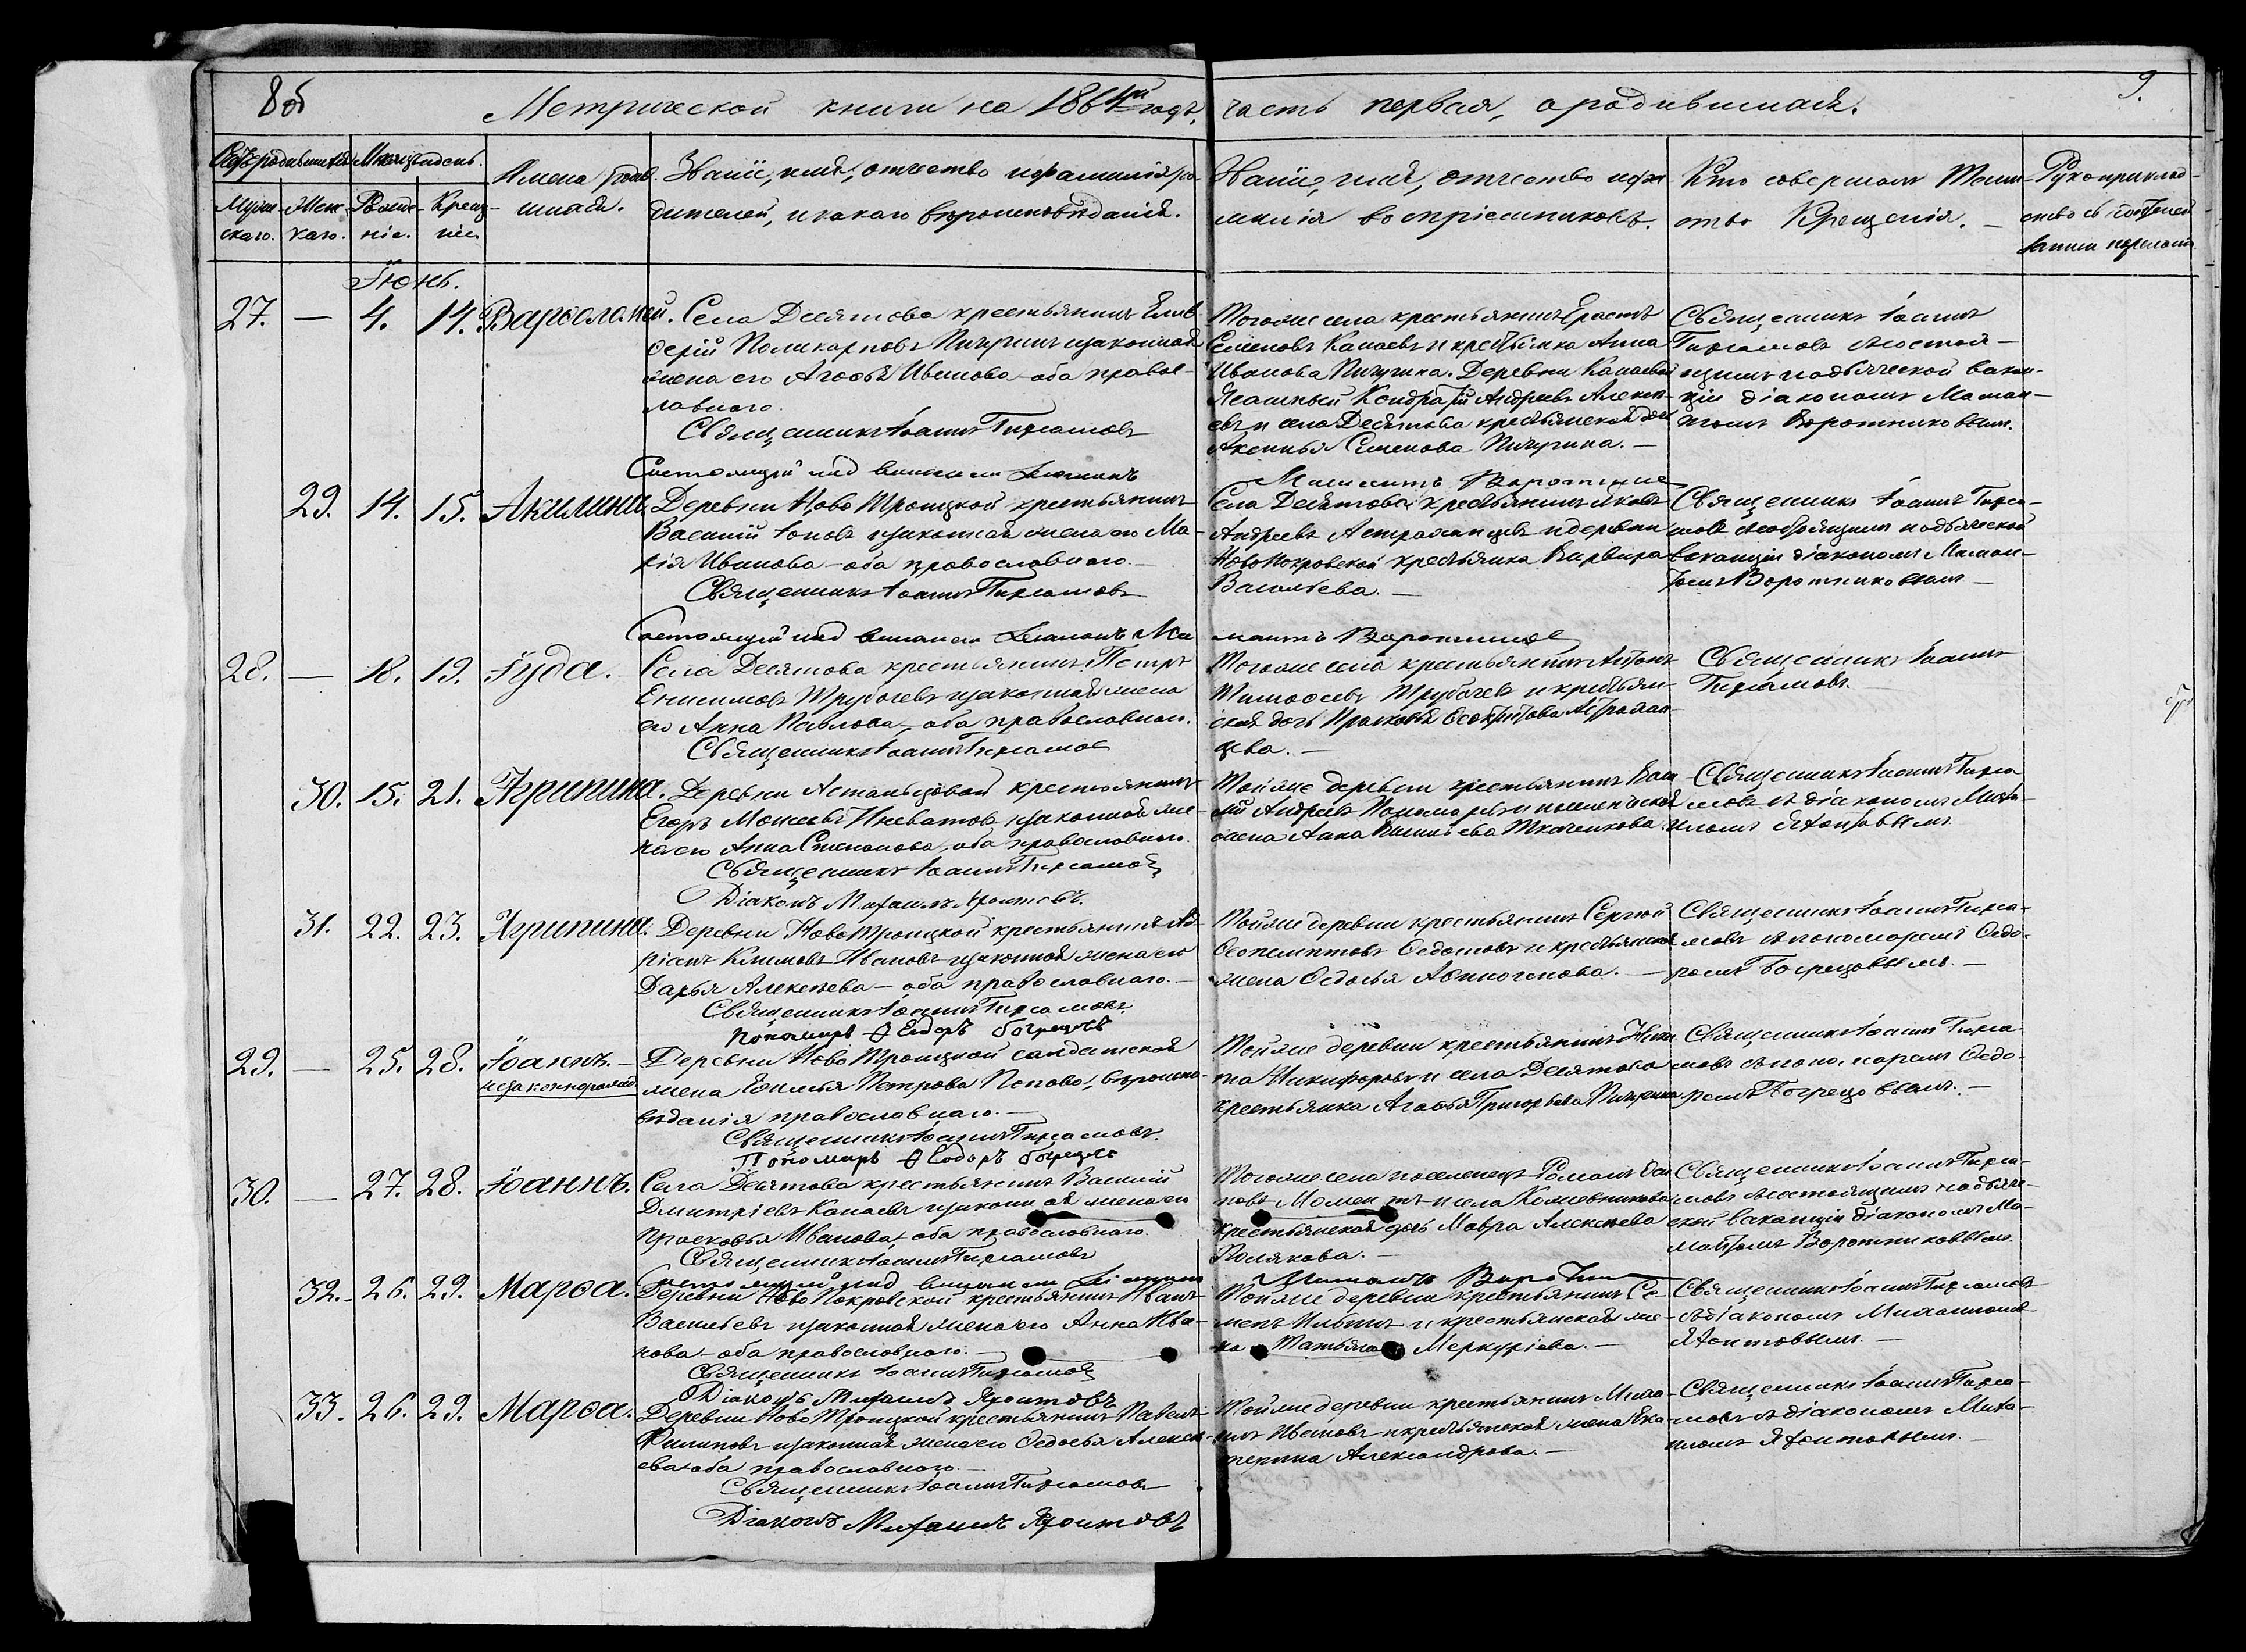 8об
Метрической книги на 1864й годъ, часть первая, о родившихся.
9.
Счетъ родившихся
Мѣсяцъ и день.
Муже-
скаго.
Жен-
каго.
Рожде-
ніе.
Крещ-
ніе.
Имена родив-
шихся.
Званіе, имя, отчество и фамилія ро-
дителей, и какаго вѣроисповѣданія.
Званіе, имя, отчество и фа-
милія воспріемниковъ.
Кто совершалъ Таин-
ство Крещенія.
Рукоприклад-
ство свидѣтелей
записи по желанію
Іюнь.
27. — 4. 14. Варѳоломей.
Села Десятова крестьянинъ Елев-
ѳерій Поликарповъ Пичугинъ и законная
жена его Агаѳья Иванова оба правос-
лавнаго.
Священникъ Іоаннъ Тихомовъ
Состоящій над вакансіи Діаконъ
Тогоже села крестьянинъ Ерастъ
Семеновъ Канаевъ и крестьянка Анна
Иванова Пичугина. Деревни Канаевой
Ясашный Кондратій Андреевъ Алексѣ-
евъ и села Десятова крестьянская дочь
Аксинья Семенова Пичугина. —
Священникъ Іоаннъ
Тихомовъ съ состоя-
щимъ на дьяческой вакан-
ціи діакономъ Маман-
томъ Воротниковымъ.
29. 14. 15. Акилина
Деревни НовоТроицкой крестьянинъ
Василій Іоновъ и законная жена его Ма-
рія Иванова — оба православнаго. —
Священникъ Іоаннъ Тихомовъ
Состоящій над вакансіи Діаконъ Ма
Села Десятова крестьянинъ Яковъ
Андреевъ Астраханцевъ и деревни
НовоПокровской крестьянка Варвара
Васильева. —
мантъ Воротников
Священникъ Іоаннъ Тихо-
мовъ на дьяческой
вакансіи діакономъ Маман-
томъ Воротниковымъ —
28. — 18. 19. Іуда.
Села Десятова крестьянинъ Петръ
Енисимовъ Трубачевъ и законная жена
его Анна Павлова, — оба православнаго.
Священникъ Іоаннъ Тихомовъ
Тогоже села крестьянинъ Антонъ
Тимоѳеевъ Трубачевъ и крестьян-
ская дочь Прасковья Ѳеоктистова Астрахан-
цева. —
Священникъ Іоаннъ
Тихомовъ.
30. 15. 21. Агрипина.
Деревни Астальцовой крестьянинъ
Егоръ Моисеевъ и законная же-
на его Анна Степанова, оба православнаго.
Священникъ Іоаннъ Тихомовъ
Діаконъ Михаилъ Яхонтовъ.
Тойже деревни крестьянинъ Васи
лій Андреевъ Пономаревъ и поселенческая
жена Анна Ткаченкова.
Священникъ Іоаннъ Тихо
мовъ съ діакономъ Миха-
иломъ Яхонтовымъ.
31. 22. 23. Агрипина.
Деревни НовоТроицкой крестьянинъ Ад-
ріанъ Климовъ Ивановъ и законная жена его
Дарья Алексѣева — оба православнаго. —
Священникъ Іоаннъ Тихомовъ
Пономарь Ѳеодоръ Богрецовъ
Тойже деревни крестьянинъ Сергѣй
Ѳеопемптовъ Ѳедотовъ и крестьянская
жена Ѳедосья Аѳиногенова. —
Священникъ Іоаннъ Тихо-
мовъ съ пономаремъ Ѳедо-
ромъ Богрецовымъ. —
29. — 25. 28. Іоаннъ. —
незаконнорожд.
Деревни НовоТроицкой солдатская
жена Евфимья Петрова Попова, вѣроиспо-
вѣданія православнаго. —
Священникъ Іоаннъ Тихомовъ.
Пономарь Ѳеодоръ Богрецовъ
Тойже деревни крестьянинъ Ники
та Никифоровъ и села Десятова
крестьянка Агаѳья Григорьева Пичугина.
Священникъ Іоаннъ Тихо-
мовъ съ пономаремъ Ѳедо-
ромъ Богрецовымъ. —
30. — 27. 28. Іоаннъ.
Села Десятова крестьянинъ Василій
Дмитріевъ Канаевъ и законная жена его
Прасковья Иванова, оба православнаго.
Священникъ Іоаннъ Тихомовъ
Состоящій над вакансіи Діаконъ
Тогоже села поселенецъ Романъ
и села Кожевникова
крестьянская дочь Мавра Алексѣева
Полякова. —
Мамантъ Воротн
Священникъ Іоаннъ Тихо-
мовъ съ состоящимъ на дьяче-
ской вакансіи діакономъ Ма-
мантомъ Воротниковымъ.
32. 26. 29. Марѳа.
Деревни НовоПокровской крестьянинъ Иванъ
Васильевъ и законная жена его Анна Ива-
нова — оба православнаго. —
Священникъ Іоаннъ Тихомовъ
Діаконъ Михаилъ Яхонтовъ
Тойже деревни крестьянинъ Се-
менъ Ильинъ и крестьянская же-
на Татьяна Меркуріева. —
Священникъ Іоаннъ Тихомовъ
съ діакономъ Михаиломъ
Яхонтовымъ. —
33. 26. 29. Марѳа.
Деревни НовоТроицкой крестьянинъ Павелъ
Филиповъ и законная жена его Ѳедосья Алексѣ-
ева оба православнаго. —
Священникъ Іоаннъ Тихомовъ
Діаконъ Михаилъ Яхонтовъ
Тойже деревни крестьянинъ Миха-
илъ Ивановъ и крестьянская жена Ека-
терина Александрова. —
Священникъ Іоаннъ Тихо-
мовъ съ діакономъ Миха-
иломъ Яхонтовымъ.